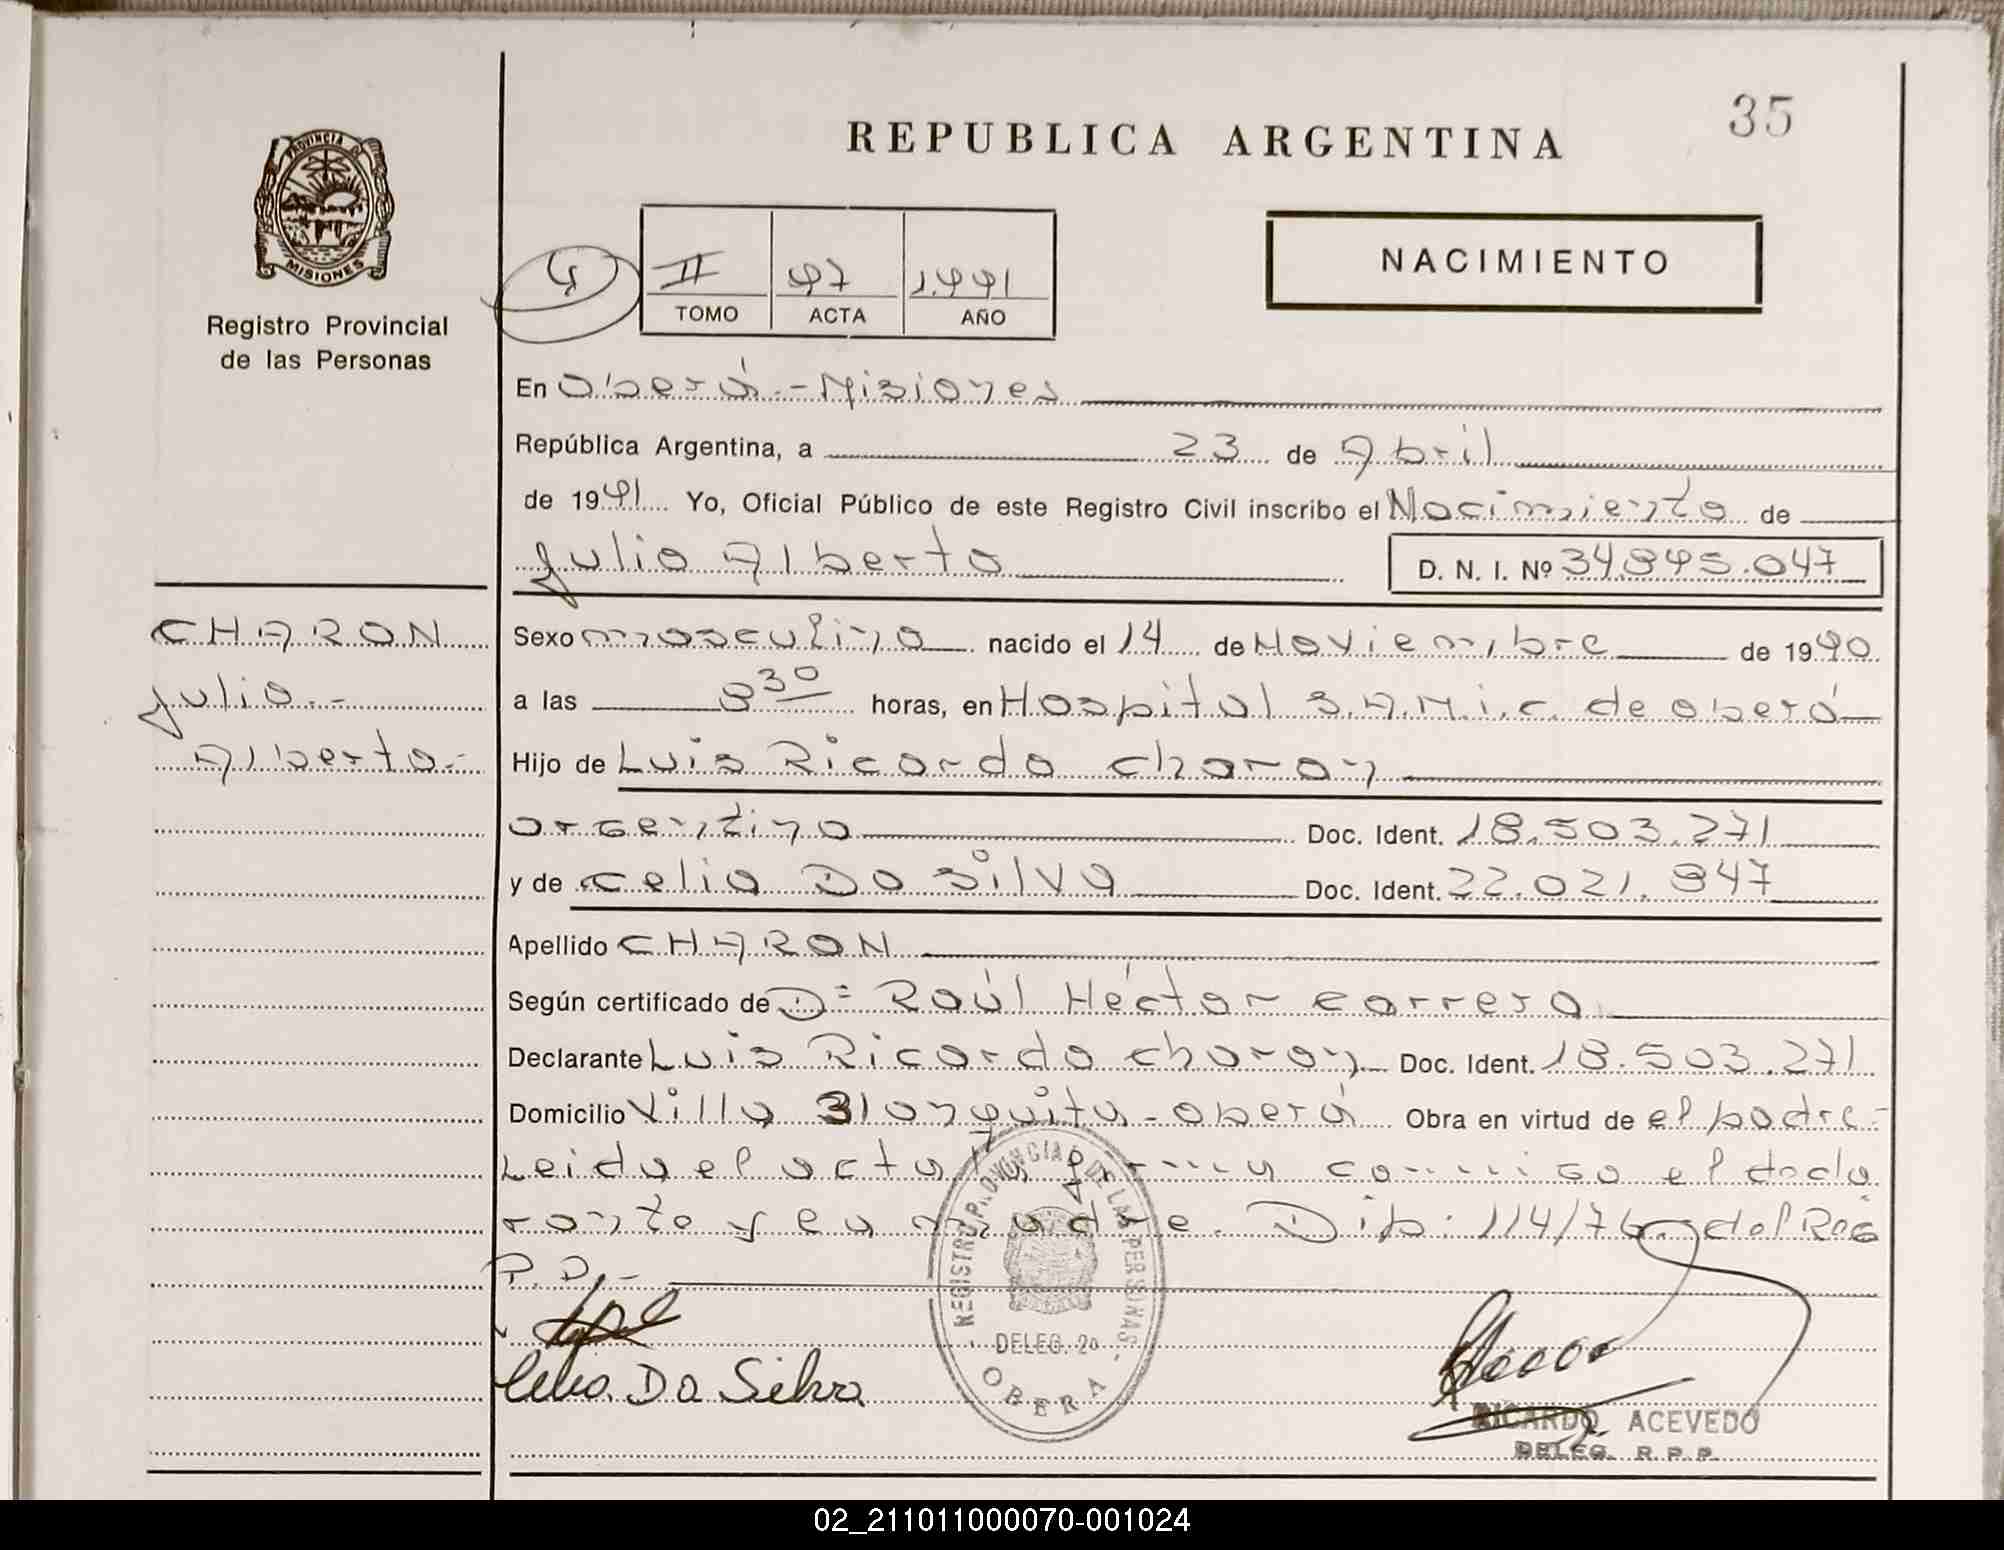 35
REPUBLICA ARGENTINA
PROVINCIA DE
MISIONES
Registro Provincial
de las Personas
II 97 1.991
TOMO ACTA AÑO
NACIMIENTO
En Oberá.- Misiones
República Argentina, a 23 de Abril
de 1991 Yo, Oficial Público de este Registro Civil inscribo el Nacimiento de
Julio Alberto D. N. I. Nº 34.895.047
CHARON
Julio.-
Alberto.-
Sexo masculino nacido el 14 de Noviembre de 1990
a las 8 30 horas, en Hospital S.A.M.i.c. de Oberá
Hijo de Luis Ricardo Charon
argentino Doc. Ident. 18.503.271
y de Celia Da Silva Doc. Ident. 22.021.847
Apellido CHARON
Según certificado de D= Raúl Héctor Carrera
Declarante Luis Ricardo Charon Doc. Ident. 18.503.271
Domicilio Villa Blanquita - Oberá Obra en virtud de el padre-
Leida el acta, firma conmigo el decla
rante y la madre. Disp: 114/76 del Reg
P.P.-
Celia Da Silva
REGISTRO PROVINCIAL DE LAS PERSONAS
DELEG. 2a
OBERA
RICARDO ACEVEDO
DELEG. R.P.P.
02_211011000070-001024